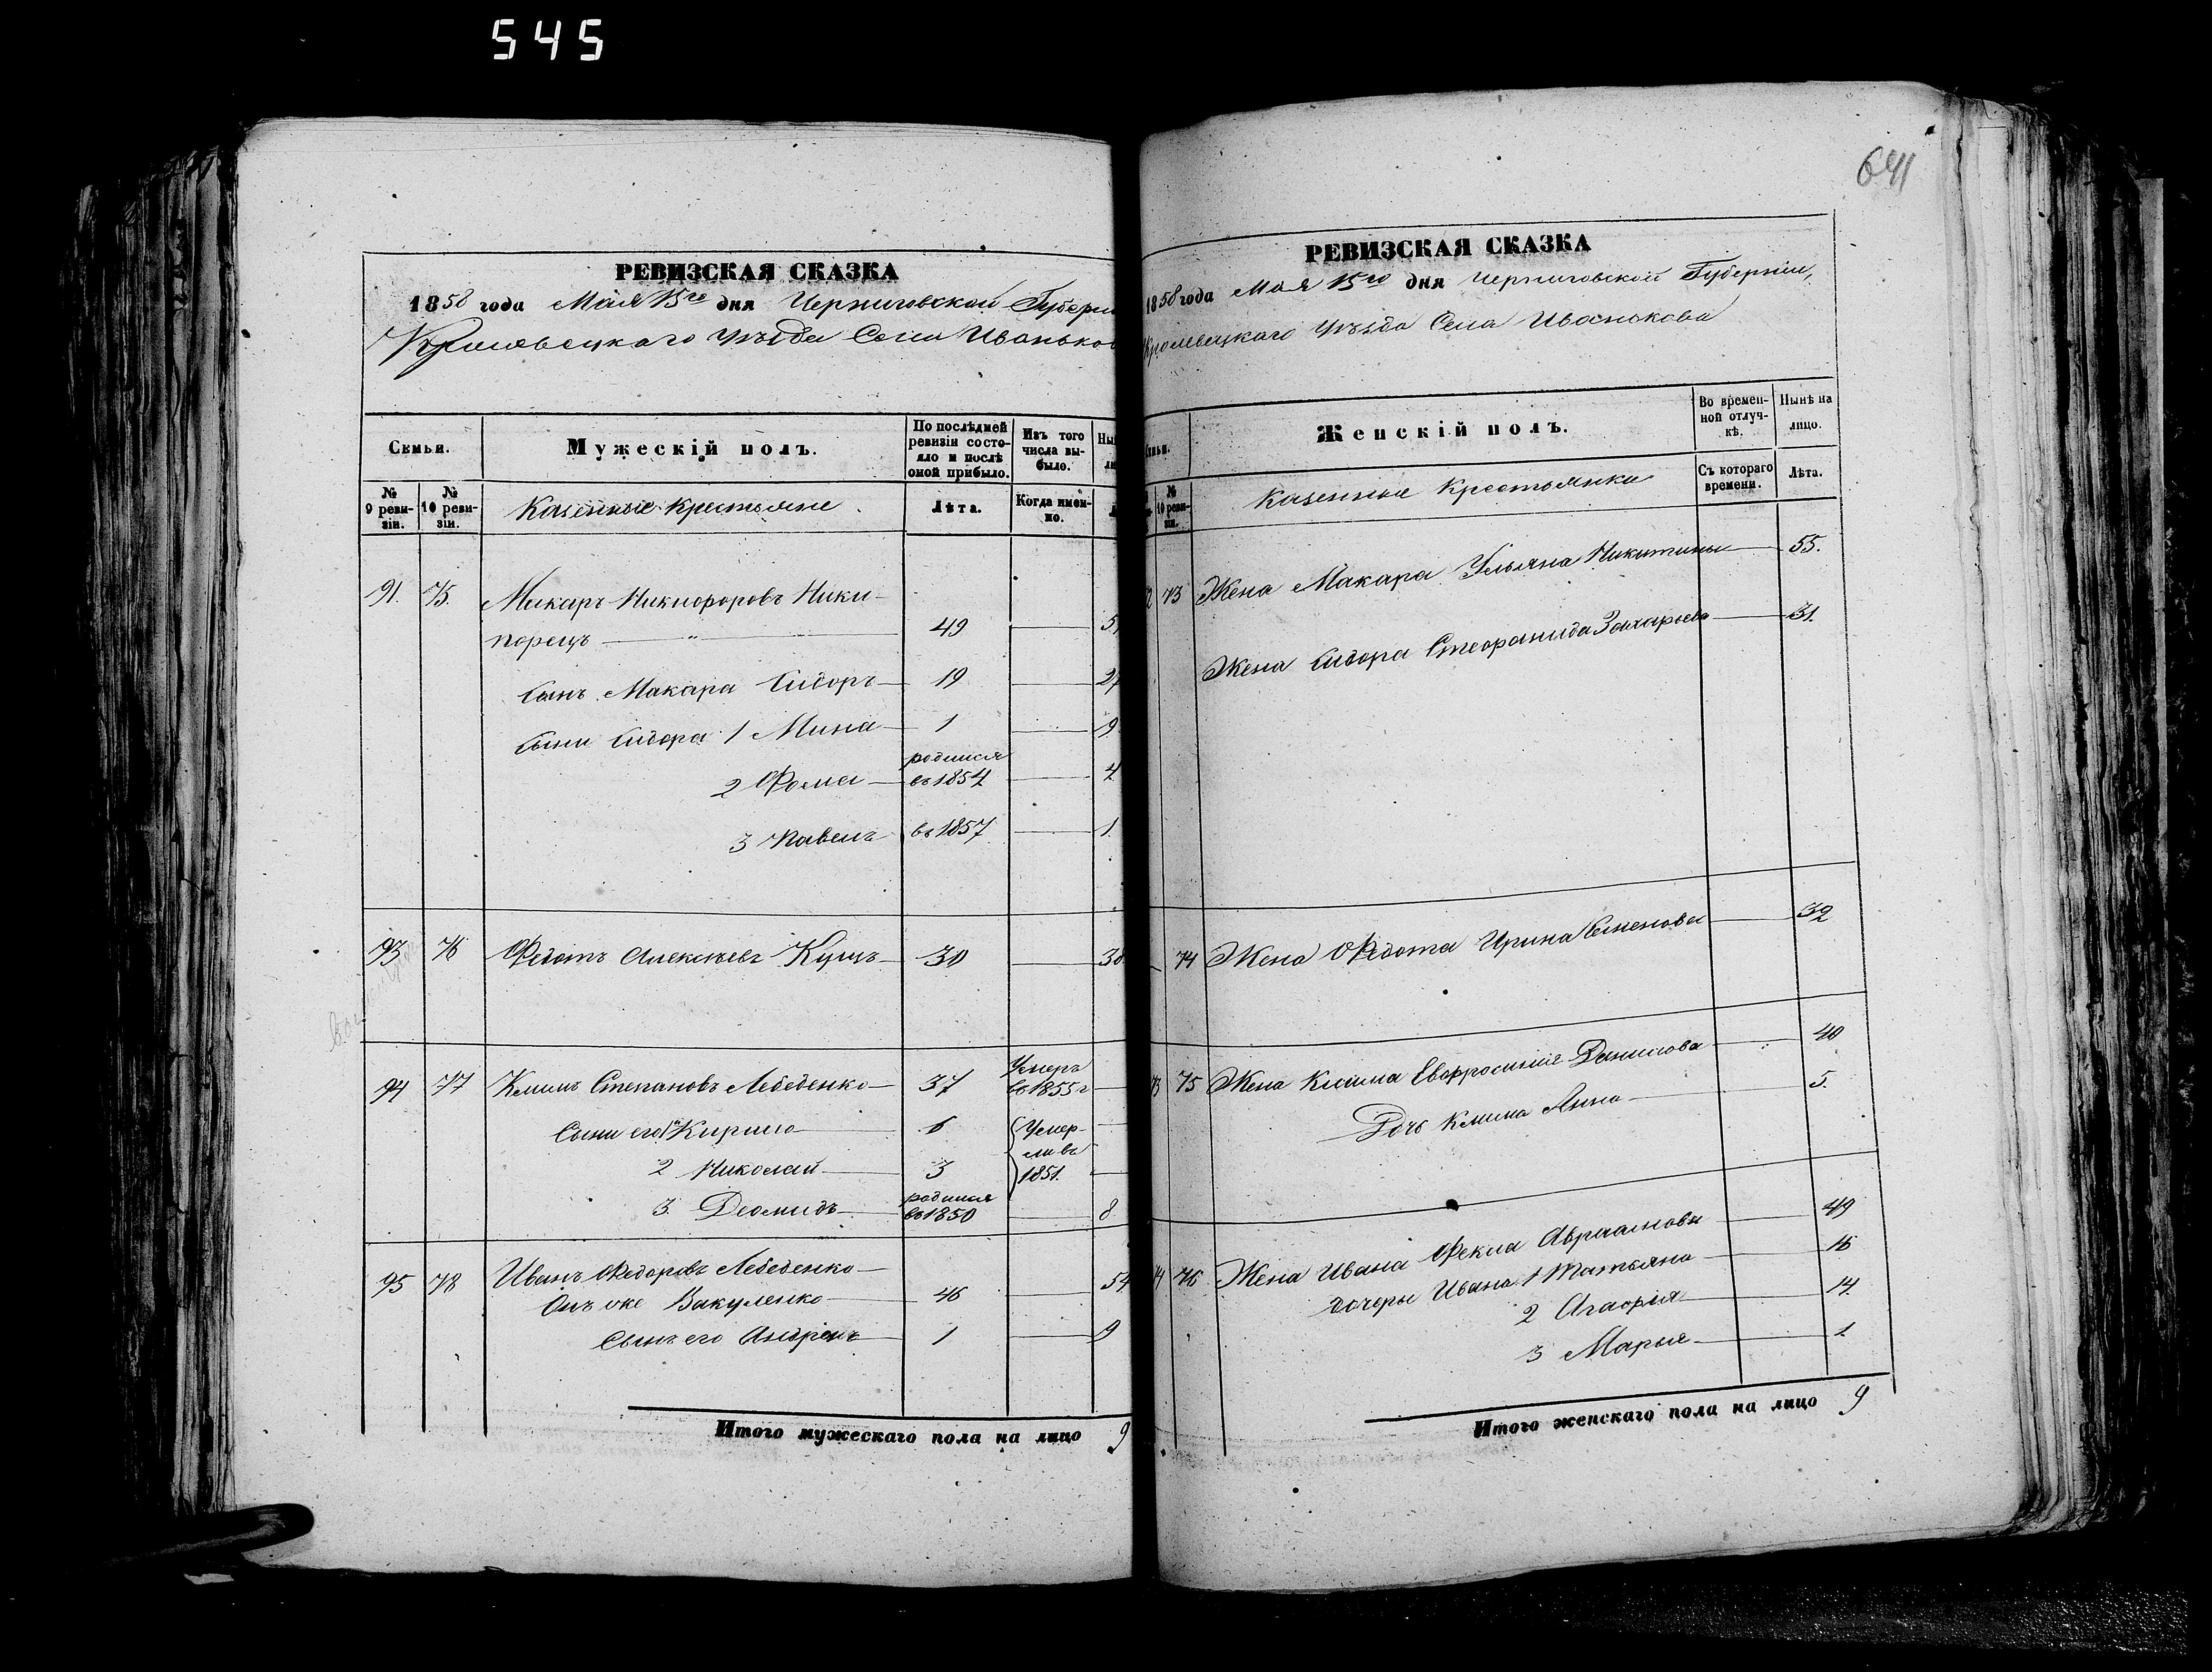 545
641
РЕВИЗСКАЯ СКАЗКА
1858 года Мая 15го дня Черниговской Губерн
Кролевецкаго Уѣзда Села Иваньков
Семьи.
Мужескій полъ.
По послѣдней ревизіи состояло и послѣ оной прибыло.
Изъ того числа выбыло.
Ны
ли
№ 9 ревизіи.
№ 10 ревизіи.
Казенные Крестьяне
Лѣта.
Когда именно.
91. 75. Макаръ Никифоровъ Ники-
порецъ — 49 — 5
Сынъ Макара Сидоръ — 19 — 27
Сыни Сидора 1 Мина — 1 — 9
2 Фома — родился въ 1854 — 4
3 Павелъ — въ 1857 — 1
93 76 Федотъ Алексѣевъ Куцъ — 30 — 38
94 77 Климъ Степановъ Лебеденко — 37 Умеръ въ 1855 г —
Сыни его 1й Кирило — 6 Умер-
2 Николай — 3 ли въ 1851. —
3. Деомидъ — родился въ 1850 — 8
95 78 Иванъ Федоровъ Лебеденко —
Онъ же Вакуленко — 46 — 54
Сынъ его Андрей — 1 — 9
Итого мужескаго пола на лицо 9
РЕВИЗСКАЯ СКАЗКА
1858 года Мая 15го дня Черниговской Губерніи,
Кролевецкаго Уѣзда Села Иванькова
Женскій полъ.
Во временной отлучкѣ.
Нынѣ на лицо.
№ 10 ревизіи.
Казенные Крестьянки
Съ котораго времени.
Лѣта.
73 Жена Макара Ульяна Никитина — 55.
Жена Сидора Стефанида Захарьева — 31.
74 Жена Федота Ирина Семенова — 32
75 Жена Клима Евфросинія Данилова — 40
Дочь Клима Анна — 5.
76 Жена Ивана Фекла Авраамова — 49
Дочеры Ивана 1 Татьяна — 16
2 Агафія — 14
3 Марья — 1
Итого женскаго пола на лицо 9